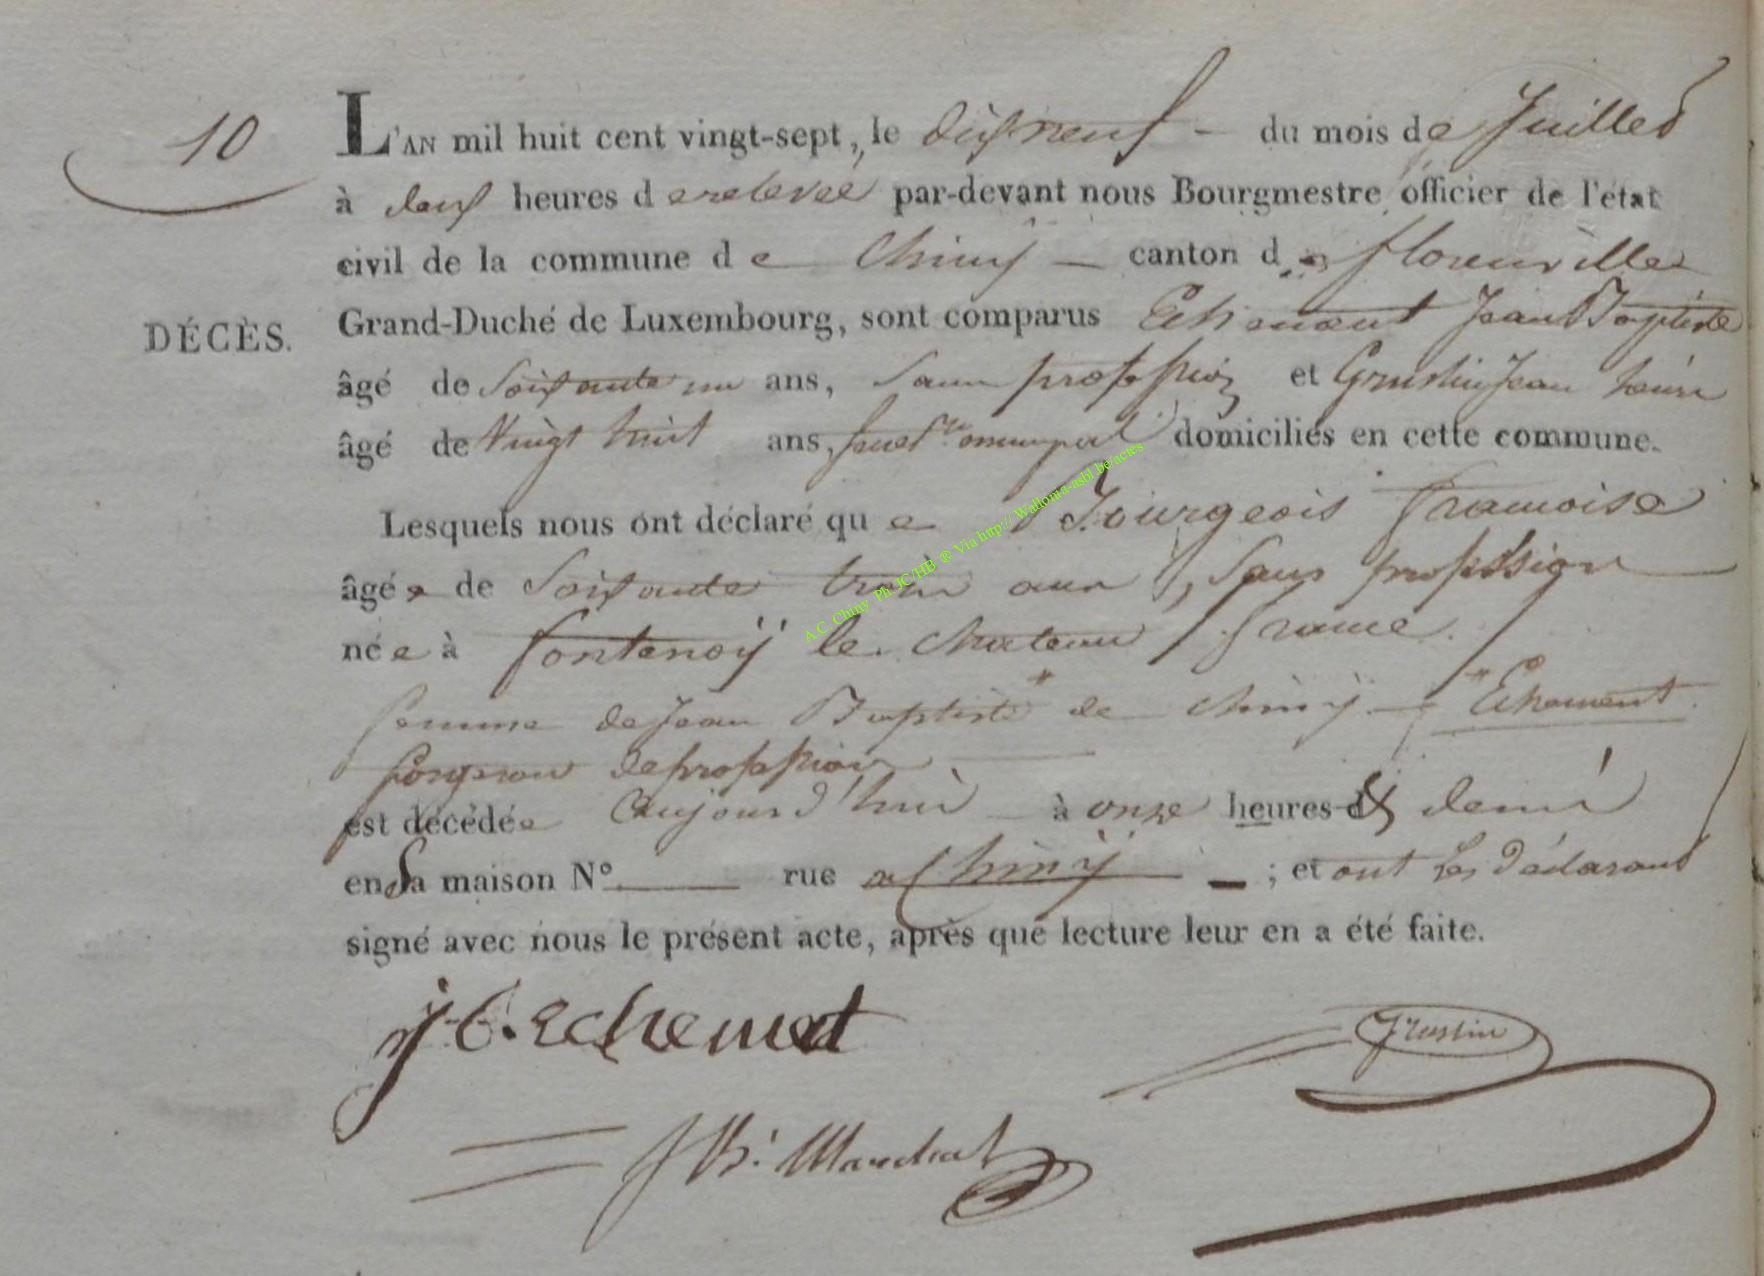 10
L'AN mil huit cent vingt-sept, le dixneuf - du mois de Juillet
à deux heures de relevée par-devant nous Bourgmestre officier de l'état
civil de la commune de Chiny - canton de florenville
DÉCÈS.
Grand-Duché de Luxembourg, sont comparus Echement Jean Baptiste
âgé de Soixante un ans, Sans profession et Grustin Jean henri
âgé de Vingt huit ans, domiciliés en cette commune.
Lesquels nous ont déclaré que Bourgeois francoise
âgée de Soixante trois ans, Sans profession
née à fontenoÿ le chateau / france.
femme de Jean Baptiste * de chinÿ - * Echement
forgeron de profession
est décédée aujourd'hui à onze heures & demi
en Sa maison N° rue a Chinÿ - ; et ont les déclarans
signé avec nous le présent acte, après que lecture leur en a été faite.
j-b. echemet
Grustin
J B. Marechal
A.C. Chiny Ph. JC/HB ® Via http:// Wallonia-asbl.be/actes